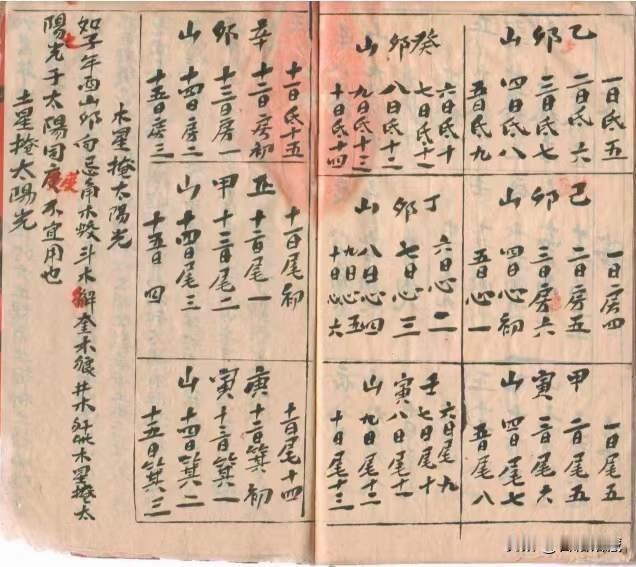 一日氐五
乙二日氐六
卯三日氐七
山四日氐八
五日氐九
六日氐十
癸七日氐十一
卯八日氐十二
山九日氐十三
十日氐十四
一日房四
己二日房五
卯三日房六
山四日心初
五日心一
丁六日心二
卯七日心三
山八日心四
九日心五
十日心六
一日尾五
甲二日尾五
寅三日尾六
山四日尾七
五日尾八
六日尾九
壬七日尾十
寅八日尾十一
山九日尾十二
十日尾十三
十一日氐十五
辛十二日房初
卯十三日房一
山十四日房二
十五日房三
十一日尾初
丑十二日尾一
甲十三日尾二
山十四日尾三
十五日四
十一日尾十四
庚十二日箕初
寅十三日箕一
山十四日箕二
十五日箕三
木星掩太陽光
如子年酉山卯向忌角木蛟斗木解奎木狼井木犴此木星掩太
陽光于太陽同度不宜用也
土星掩太陽光